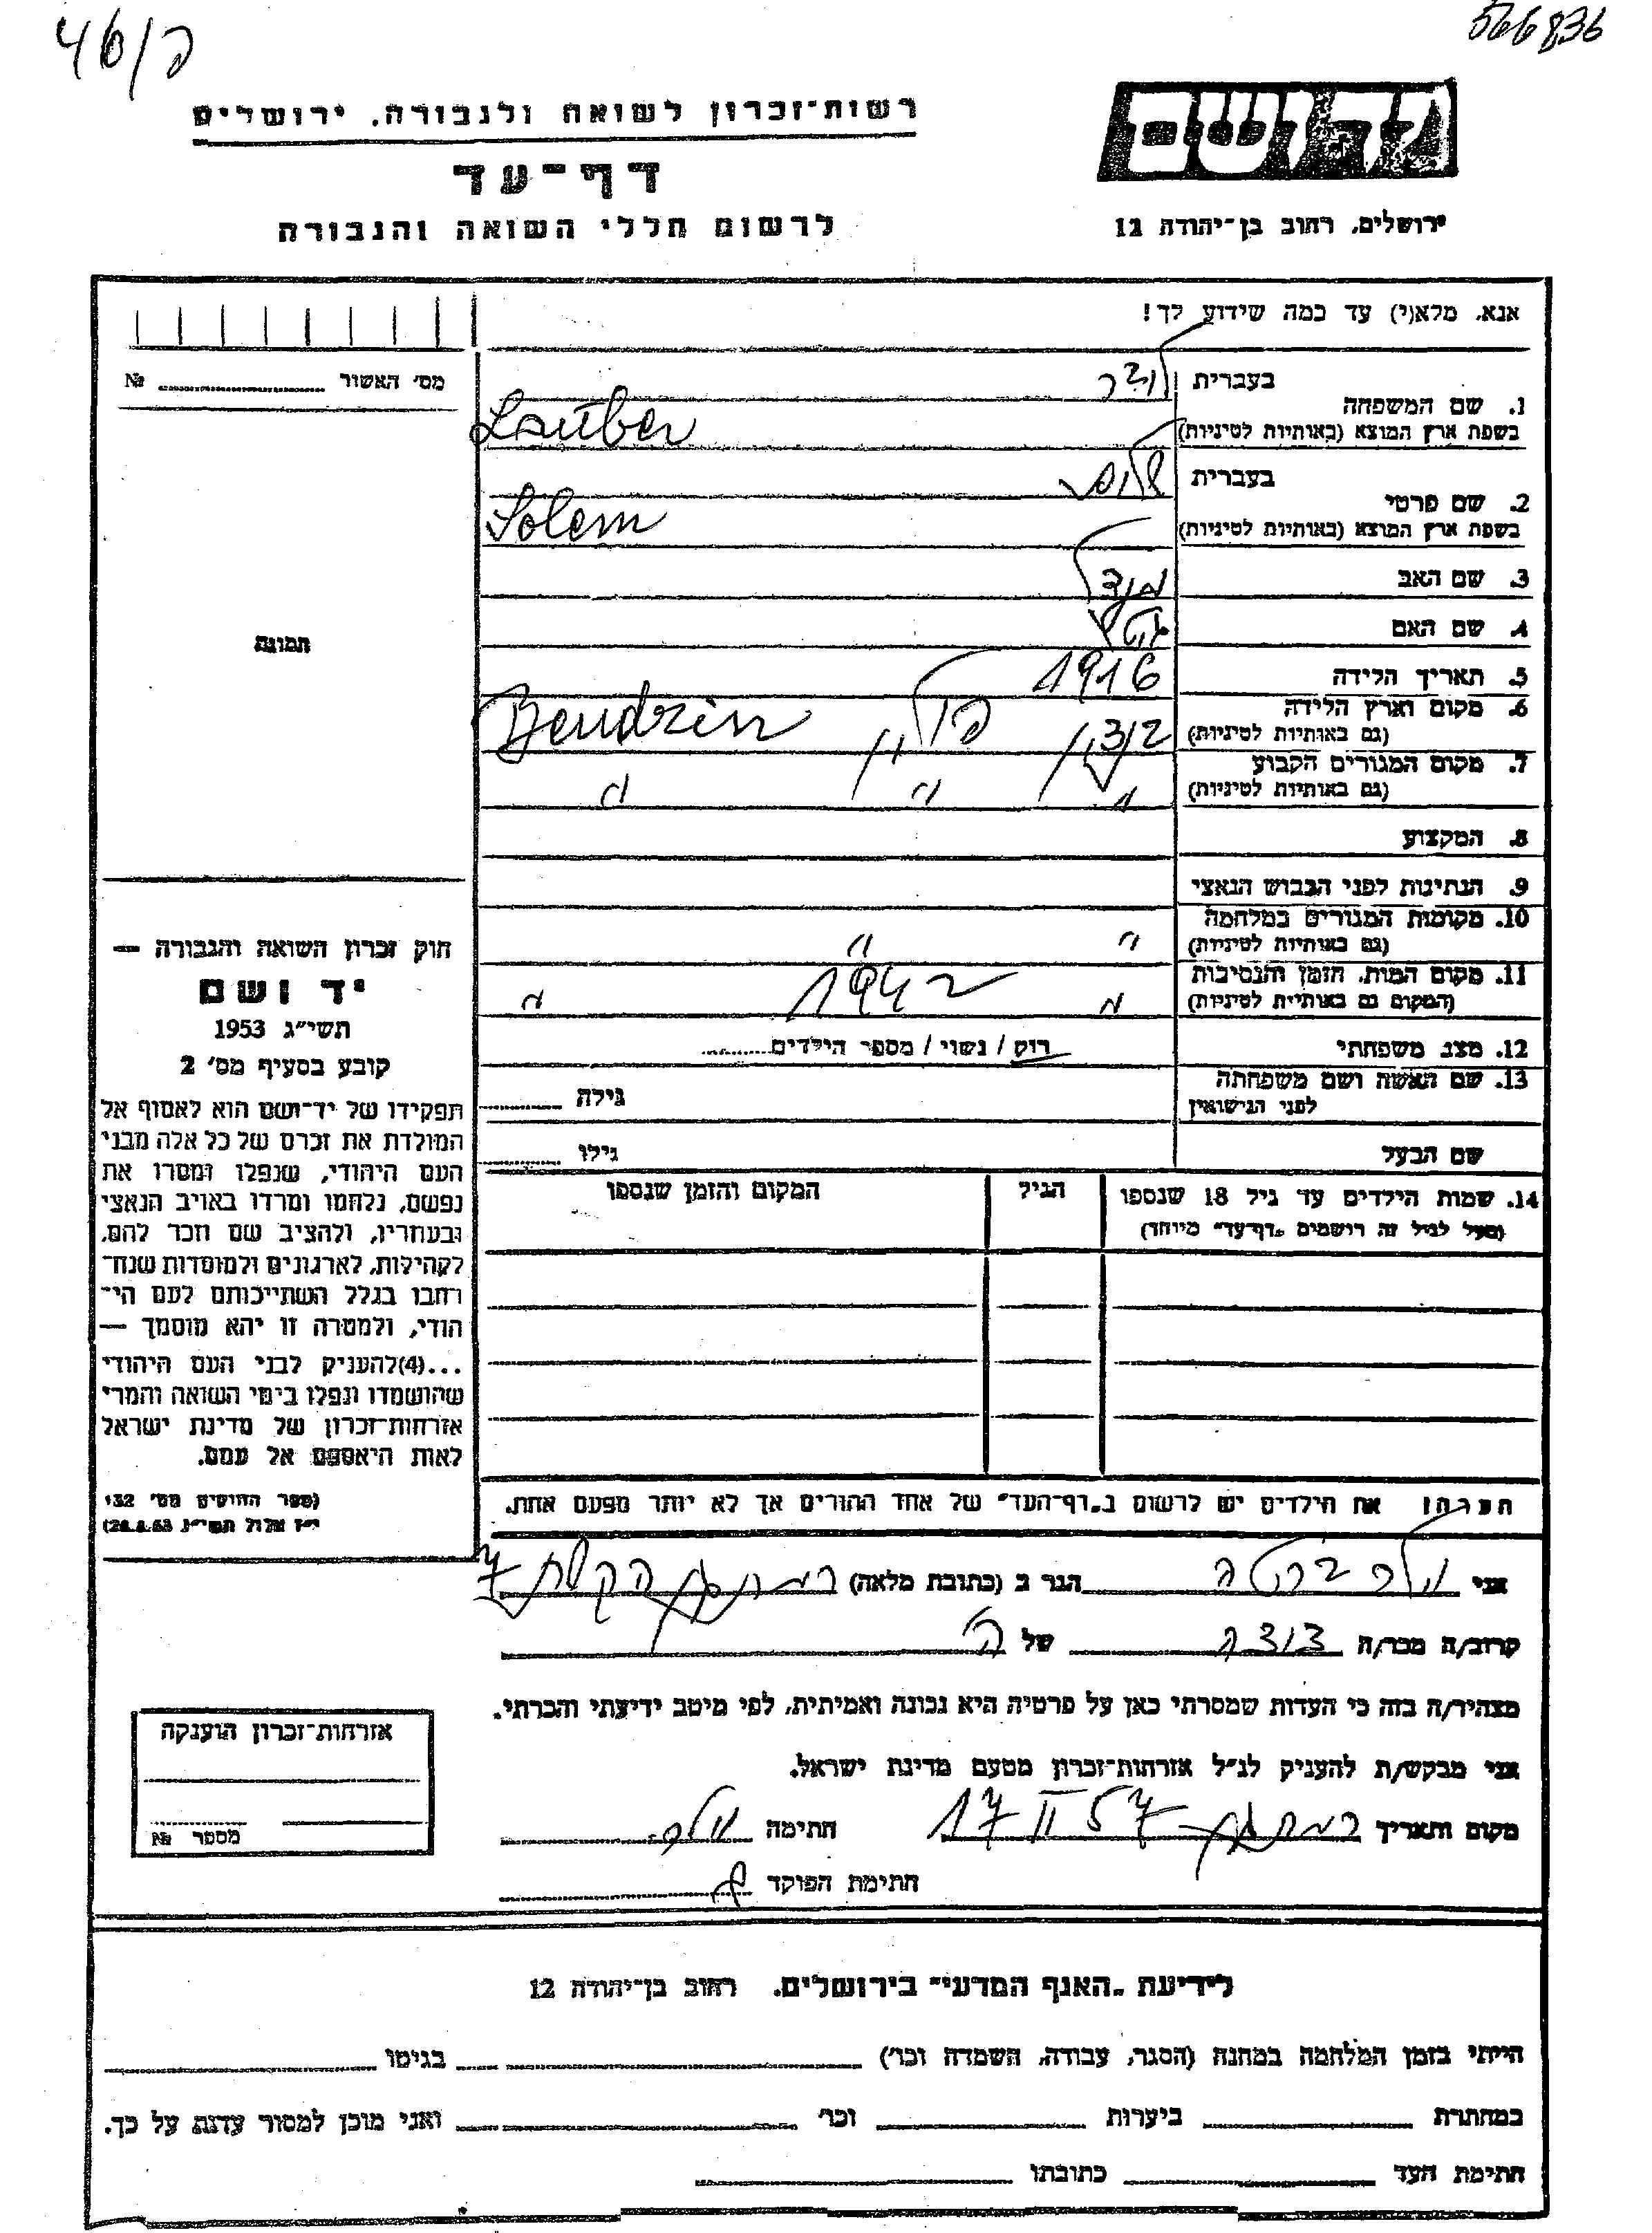 566836
פ/46
רשות־זכרון לשואה ולגבורה, ירושלים
דף־עד
לרשום חללי השואה והגבורה
יד ושם
ירושלים, רחוב בן־יהודה 12
אנא, מלא(י) עד כמה שידוע לך!
מס׳ האשור № 
1. שם המשפחה
בעברית לויבר
בשפת ארץ המוצא (באותיות לטיניות) Lauber
2. שם פרטי
בעברית
בשפת ארץ המוצא (באותיות לטיניות) Solem
3. שם האב
4. שם האם
5. תאריך הלידה 1916
6. מקום וארץ הלידה
(גם באותיות לטיניות) פולין Bendzin
7. מקום המגורים הקבוע
(גם באותיות לטיניות) " " "
8. המקצוע
9. הנתינות לפני הכבוש הנאצי
10. מקומות המגורים במלחמה
(גם באותיות לטיניות) " "
11. מקום המות, הזמן והנסיבות
(המקום גם באותיות לטיניות) " 1942 "
12. מצב משפחתי רווק / נשוי / מספר הילדים
13. שם האשה ושם משפחתה
לפני הנישואין גילה
שם הבעל גילו
14. שמות הילדים עד גיל 18 שנספו הגיל המקום והזמן שנספו
(מעל לגיל זה רושמים „דף־עד” מיוחד)
תמונה
חוק זכרון השואה והגבורה —
יד ושם
תשי״ג 1953
קובע בסעיף מס׳ 2
תפקידו של יד־ושם הוא לאסוף אל
המולדת את זכרם של כל אלה מבני
העם היהודי, שנפלו ומסרו את
נפשם, נלחמו ומרדו באויב הנאצי
ובעוזריו, ולהציב שם וזכר להם,
לקהילות, לארגונים ולמוסדות שנח־
רבו בגלל השתייכותם לעם הי־
הודי, ולמטרה זו יהא מוסמך —
...(4)להעניק לבני העם היהודי
שהושמדו ונפלו בימי השואה והמרי
אזרחות־זכרון של מדינת ישראל
לאות היאספם אל עמם.
(ספר החוקים מס׳ 132
י״ז אלול תשי״ג 28.8.53)
הערה! את הילדים יש לרשום ב„דף־העד” של אחד ההורים אך לא יותר מפעם אחת.
אני הגר ב (כתובת מלאה) רמת גן 7
קרוב/ה מכר/ה של
מצהיר/ה בזה כי העדות שמסרתי כאן על פרטיה היא נכונה ואמיתית, לפי מיטב ידיעתי והכרתי.
אני מבקש/ת להעניק לנ״ל אזרחות־זכרון מטעם מדינת ישראל.
מקום ותאריך רמת גן 17 II 57 חתימה
חתימת הפוקד
אזרחות־זכרון הוענקה
מספר №
לידיעת „האגף המדעי” בירושלים, רחוב בן־יהודה 12
הייתי בזמן המלחמה במחנה (הסגר, עבודה, השמדה וכו׳) בגיטו
במחתרת ביערות וכו׳ ואני מוכן למסור עדות על כך.
חתימת העד כתובתו